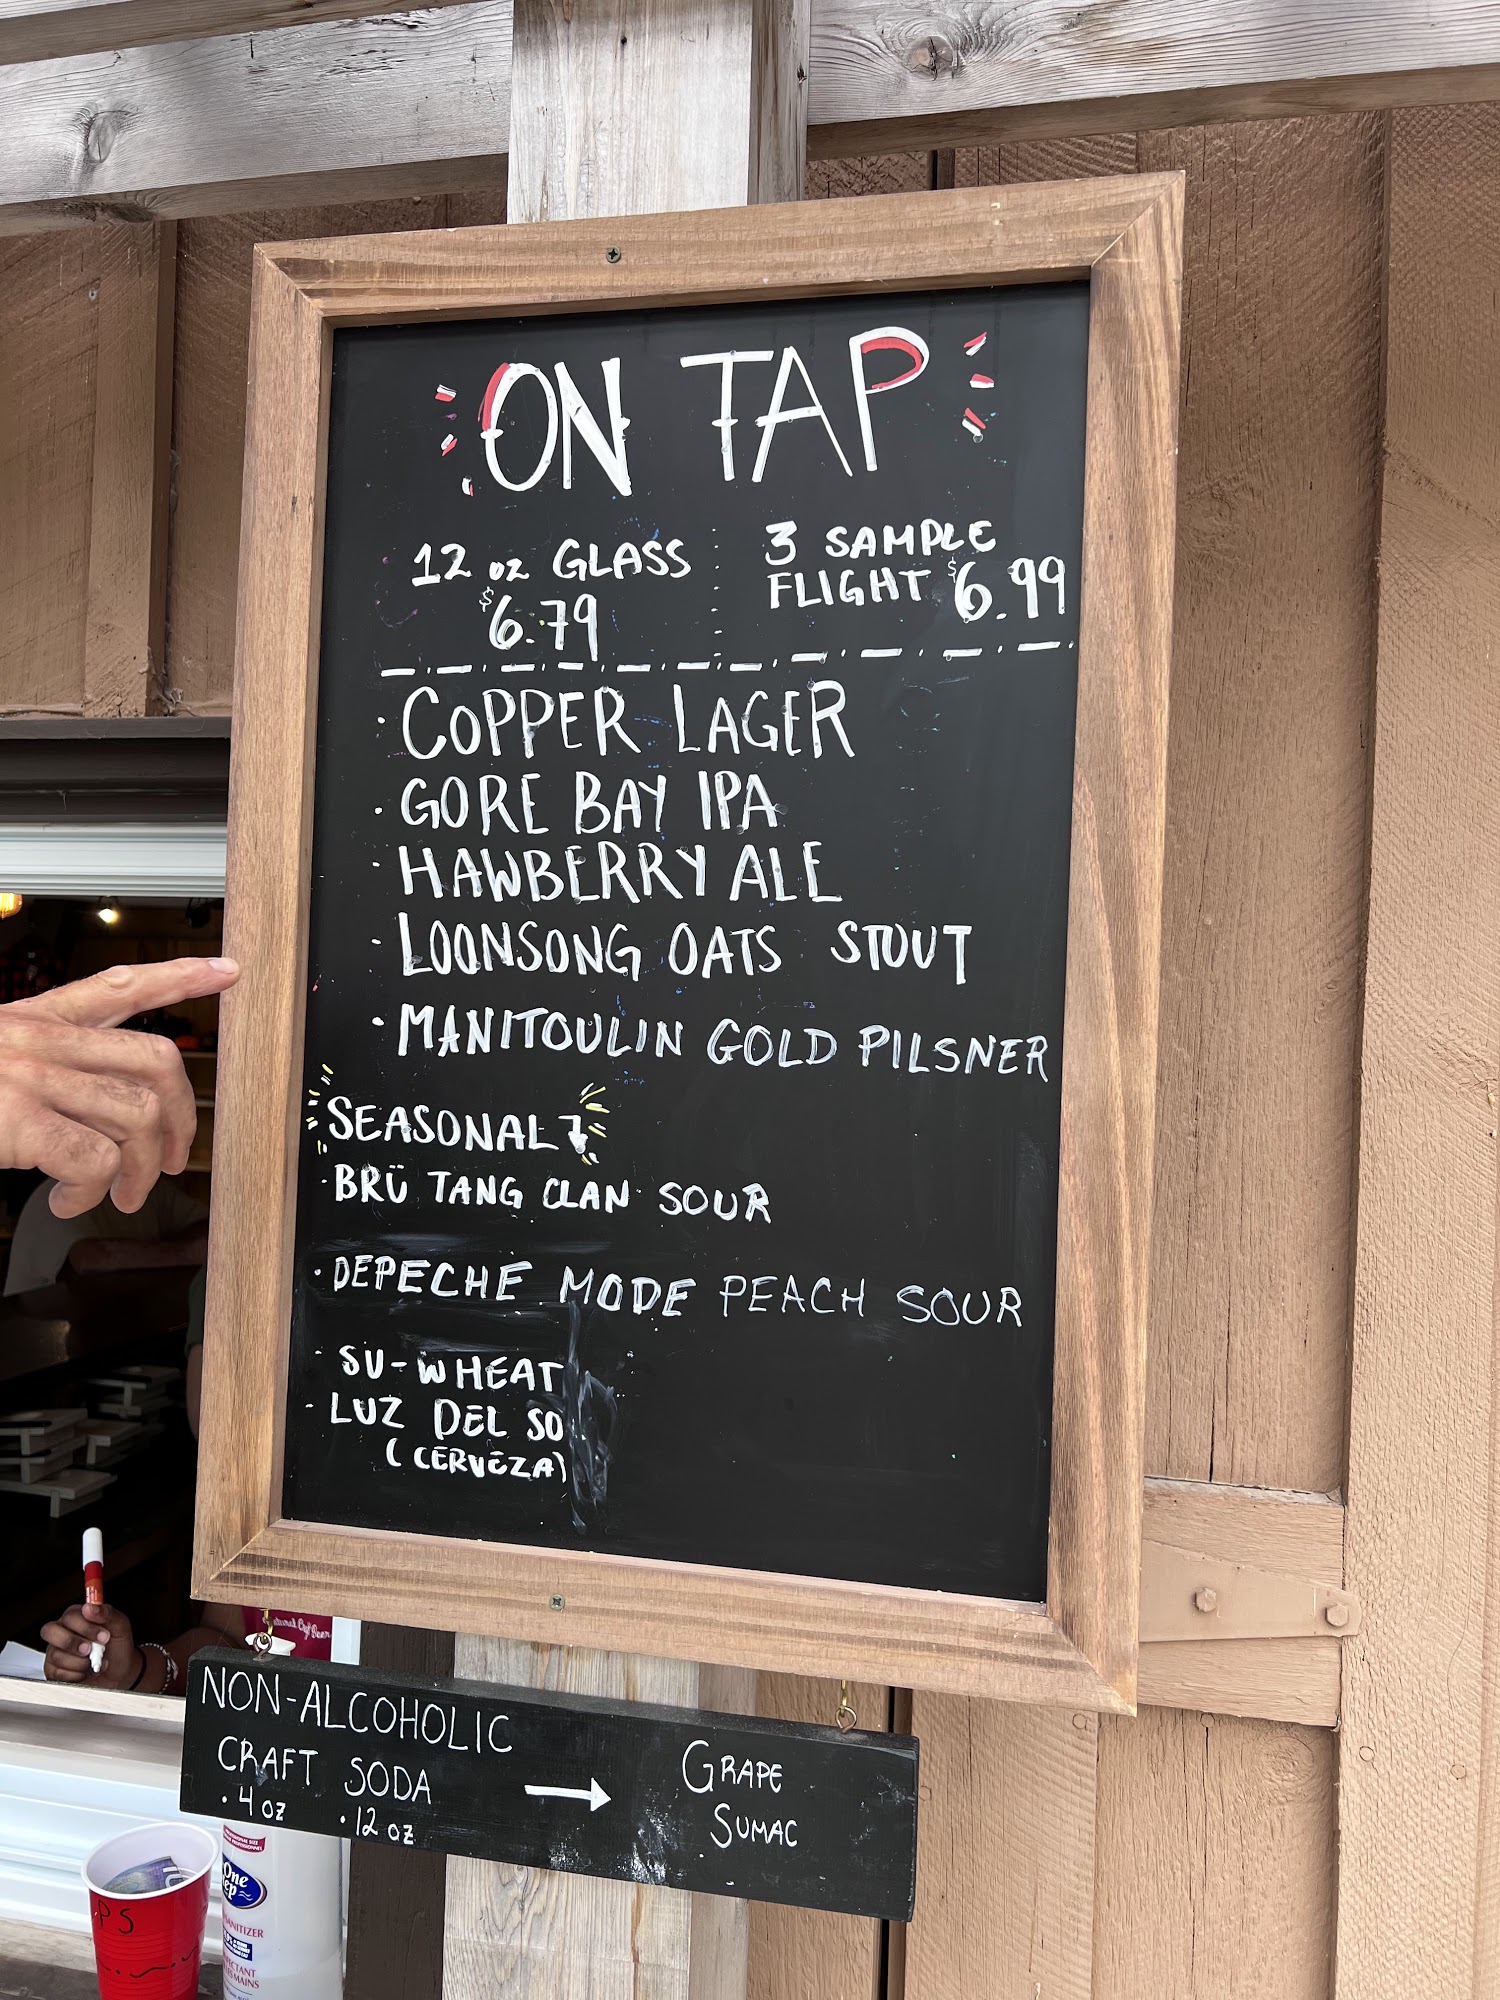 ON TAP
12 oz GLASS
$6.79
3 SAMPLE
FLIGHT $6.99
· COPPER LAGER
· GORE BAY IPA
· HAWBERRY ALE
· LOONSONG OATS STOUT
· MANITOULIN GOLD PILSNER
SEASONAL
· BRÜ TANG CLAN SOUR
· DEPECHE MODE PEACH SOUR
· SU-WHEAT
· LUZ DEL SO
(CERVEZA)
NON-ALCOHOLIC
CRAFT SODA → GRAPE
SUMAC
· 4 oz · 12 oz
PS
One
ep
ANITIZER